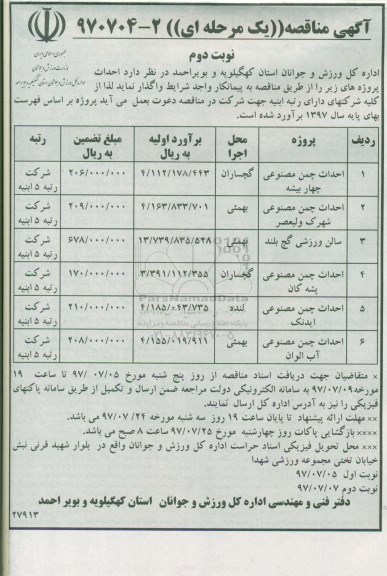 آگهی مناقصه((یک مرحله ای)) ۲-۹۷۰۷۰۴
نوبت دوم
اداره کل ورزش و جوانان استان کهگیلویه و بویراحمد در نظر دارد احداث
پروژه های زیر را از طریق مناقصه به پیمانکار واجد شرایط واگذار نماید لذا از
کلیه شرکتهای دارای رتبه ابنیه جهت شرکت در مناقصه دعوت بعمل می آید پروژه بر اساس فهرست
بهای پایه سال ۱۳۹۷ برآورد شده است.
ردیف پروژه محل اجرا برآورد اولیه به ریال مبلغ تضمین به ریال رتبه
۱ احداث چمن مصنوعی چهار بیشه گچساران ۴/۱۱۲/۱۷۸/۴۴۳ ۲۰۶/۰۰۰/۰۰۰ شرکت رتبه ۵ ابنیه
۲ احداث چمن مصنوعی شهرک ولیعصر بهمئی ۴/۱۶۳/۸۳۳/۷۰۱ ۲۰۹/۰۰۰/۰۰۰ شرکت رتبه ۵ ابنیه
۳ سالن ورزشی گچ بلند بهمئی ۱۳/۷۳۹/۸۳۵/۵۲۸ ۶۷۸/۰۰۰/۰۰۰ شرکت رتبه ۵ ابنیه
۴ احداث چمن مصنوعی پشه کان گچساران ۳/۳۹۱/۱۱۲/۳۵۵ ۱۷۰/۰۰۰/۰۰۰ شرکت رتبه ۵ ابنیه
۵ احداث چمن مصنوعی ایدنک لنده ۴/۱۸۵/۰۴۳/۷۳۵ ۲۱۰/۰۰۰/۰۰۰ شرکت رتبه ۵ ابنیه
۶ احداث چمن مصنوعی آب الوان بهمئی ۴/۱۵۵/۰۱۹/۹۱۱ ۲۰۸/۰۰۰/۰۰۰ شرکت رتبه ۵ ابنیه
× متقاضیان جهت دریافت اسناد مناقصه از روز پنج شنبه مورخ ۹۷/۰۷/۰۵ تا ساعت ۱۹
مورخه ۹۷/۰۷/۰۹ به سامانه الکترونیکی دولت مراجعه ضمن ارسال و تکمیل از طریق سامانه پاکتهای
فیزیکی را نیز به آدرس اداره کل ارسال نمایند.
××مهلت ارائه پیشنهاد تا پایان ساعت ۱۹ روز سه شنبه مورخه ۹۷/۰۷/۲۴ می باشد.
×××بازگشایی پاکات روز چهارشنبه مورخ ۹۷/۰۷/۲۵ ساعت ۸ صبح می باشد.
××× محل تحویل فیزیکی اسناد حراست اداره کل ورزش و جوانان واقع در بلوار شهید قرنی نبش
خیابان تختی مجموعه ورزشی شهدا
نوبت اول ۹۷/۰۷/۰۵
نوبت دوم ۹۷/۰۷/۰۷
دفتر فنی و مهندسی اداره کل ورزش و جوانان استان کهگیلویه و بویر احمد
۲۷۹۱۳